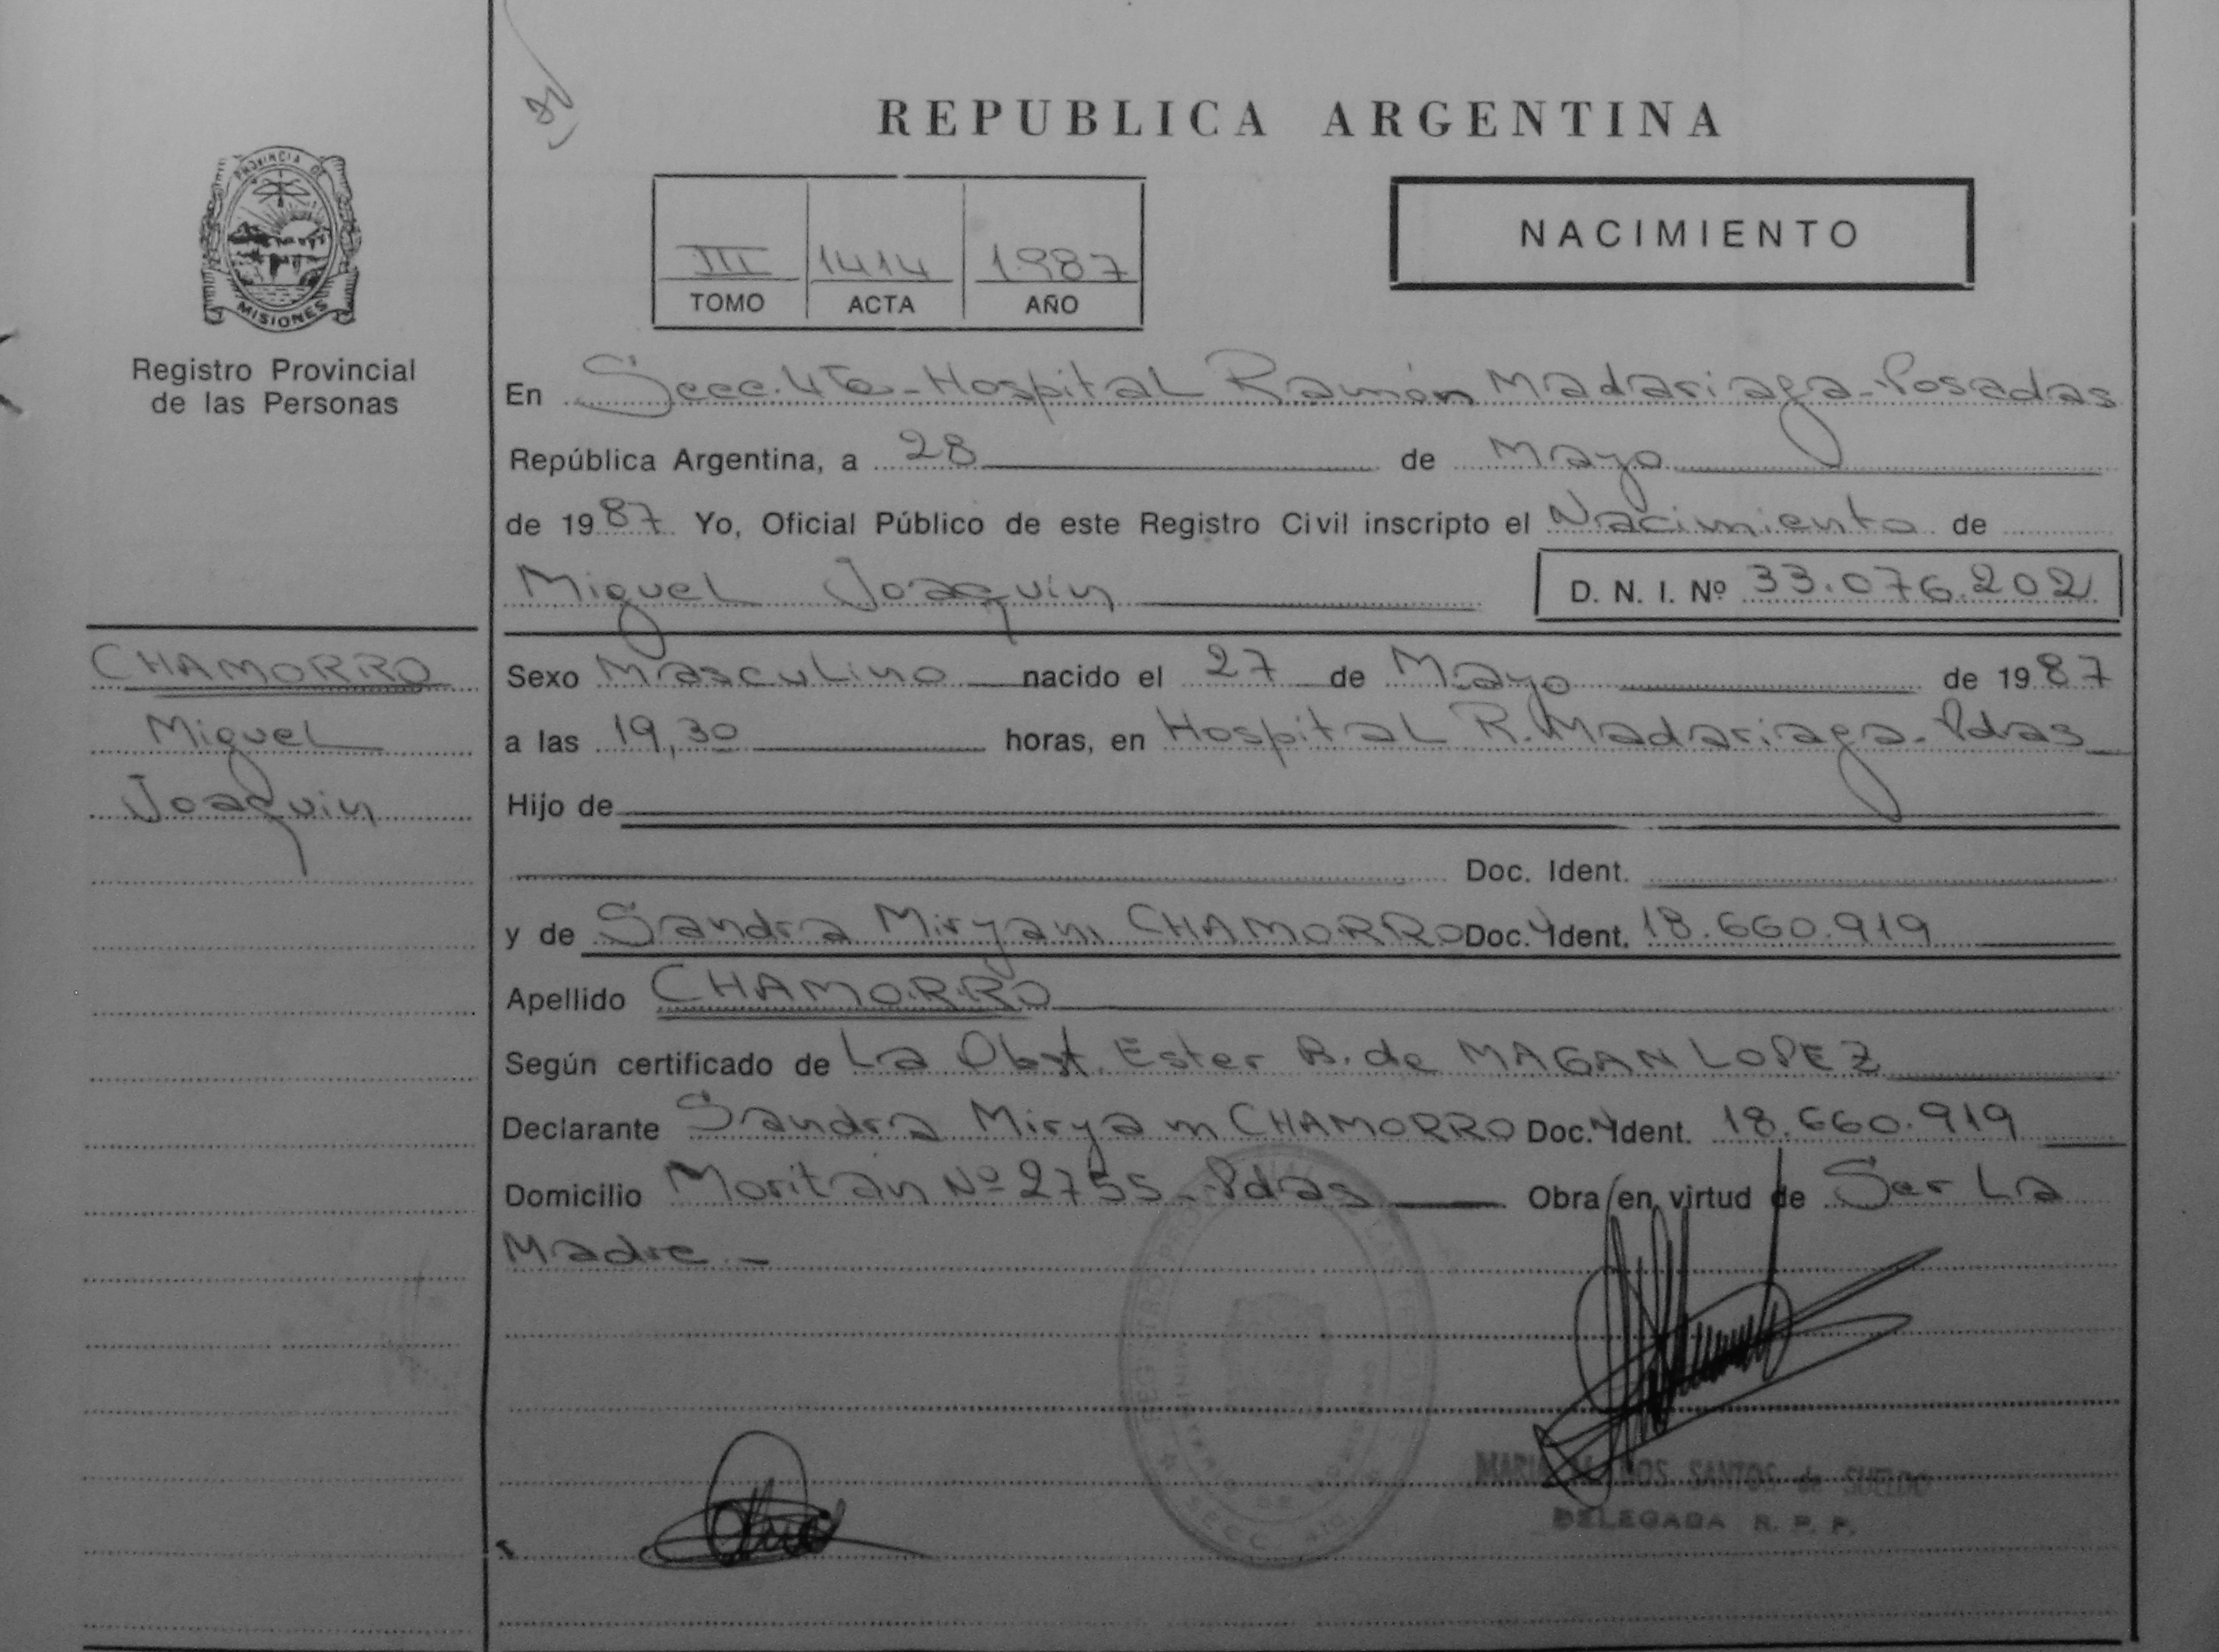 PROVINCIA DE
MISIONES
Registro Provincial
de las Personas
CHAMORRO
Miguel
Joaquin
REPUBLICA ARGENTINA
III 1414 1987
TOMO ACTA AÑO
NACIMIENTO
En Secc. 4ta - Hospital Ramón Madariaga - Posadas
República Argentina, a 28 de Mayo
de 1987 Yo, Oficial Público de este Registro Civil inscripto el Nacimiento de
Miguel Joaquín D. N. I. Nº 33.076.202
Sexo Masculino nacido el 27 de Mayo de 1987
a las 19,30 horas, en Hospital R. Madariaga - Pdas
Hijo de
Doc. Ident.
y de Sandra Miryam CHAMORRO Doc. Ident. 18.660.919
Apellido CHAMORRO
Según certificado de La Obst. Ester B. de MAGAN LOPEZ
Declarante Sandra Miryam CHAMORRO Doc. Ident. 18.660.919
Domicilio Moritán Nº 2755 - Pdas Obra en virtud de Ser La
Madre -
SANTOS de SUELDO
DELEGADA R. P. P.